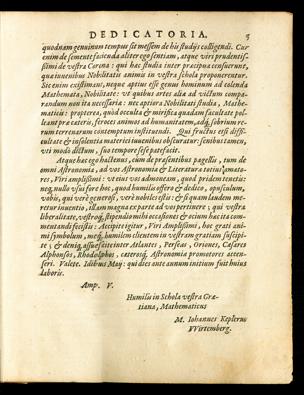 DEDICATORIA. 5
quodnam genuinum tempus sit messem de his studijs colligendi. Cur
enim de sementе facienda aliter ego sentiam, atque viri prudentis-
simi de vestra Corona: qui hæc studia inter præcipua censuerunt,
quæ iuuenibus Nobilitatis animis in vestra schola proponerentur.
Sic enim existimant, neque aptius esse genus hominum ad tolenda
Mathemata, Nobilitate: vt quibus artes aliæ ad victum compa-
randum non ita necessariæ: nec aptiora Nobilitati studia, Mathe-
maticis: propterea, quòd occulta & mirifica quadam facultate pol-
leant præ cæteris, feroces animos ad humanitatem, adq́; sobrium re-
rum terrenarum contemptum instituendi. Qui fructus etsi diffi-
cultate & insolentia materiei iuuenibus obscuratur: senibus tamen,
vti modò dictum, suo tempore sese patefacit.
Atque hæc ego hactenus, cum de præsentibus pagellis, tum de
omni Astronomia, ad vos Astronomiæ & Literatura totius amato-
res, Viri amplissimi: vt eius vos admoneam, quod pridem tenetis:
neq́; nullo vsui fore hoc, quod humilis offero & dedico, opusculum,
vobis, qui verè generosi, verè nobiles estis: & si quam laudem me-
retur inuentio, illam magna ex parte ad vos pertinere; qui vestra
liberalitate, vestroq́; stipendio mihi occasiones & ocium hæc ita com-
mentandi fecistis: Accipite igitur, Viri Amplissimi, hoc grati ani-
mi symbolum, meq́; humilem clientem in vestram gratiam suscipi-
te; & deniq; assuescite inter Atlantes, Perseas, Oriones, Cæsares
Alphonsos, Rhodolphos, cæterosq; Astronomiæ promotores accen-
seri. Valete. Idibus Maij: qui dies ante annum initium fuit huius
laboris.
Amp. V.
Humilis in Schola vestra Græ-
tiana, Mathematicus
M. Iohannes Keplerus
VVirtemberg.